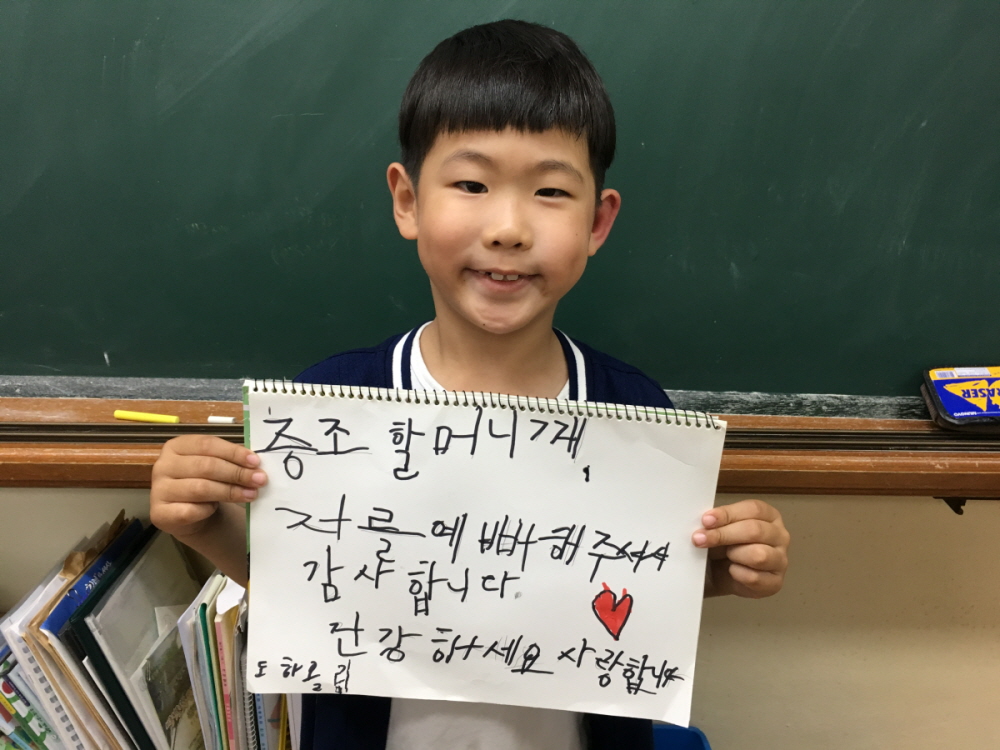 증조 할머니께,
저를 예뻐해주셔서
감사합니다.
건강하세요 사랑합니다
도하를림
ERASER